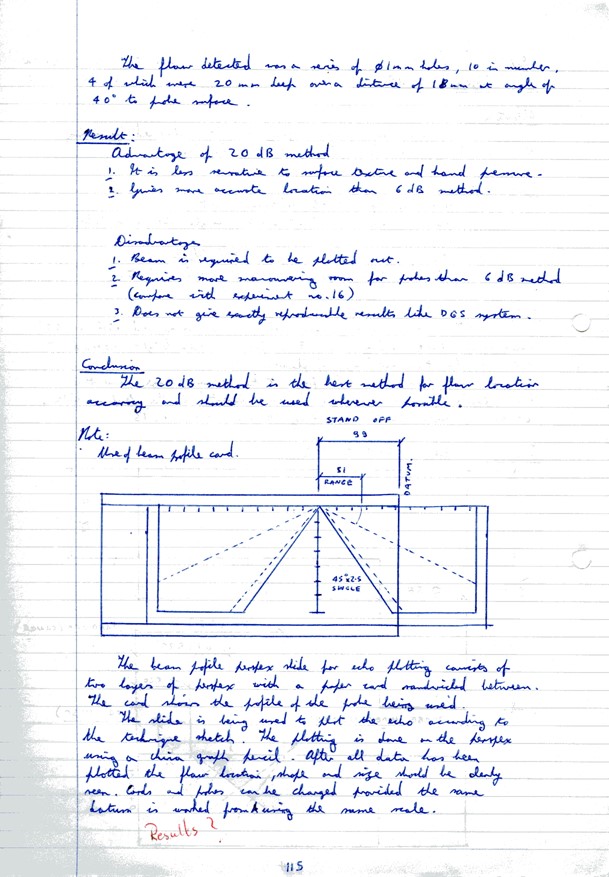 The flaw detected was a series of Ø1mm holes, 10 in number,
4 of which were 20 mm deep over a distance of 18mm at angle of
40° to probe surface.
Result:
Advantage of 20 dB method
1. It is less sensative to surface texture and hand pressure.
2. Gives more accurate location than 6 dB method.
Disadvantages
1. Beam is required to be plotted out.
2. Requires more manouvering room for probes than 6 dB method
(compare with experiment no. 16)
3. Does not give exactly reproducable results like DGS system.
Conclusion
The 20 dB method is the best method for flaw location
accuracy and should be used wherever possible.
Note:
Use of beam profile card.
STAND OFF
99
51
RANGE
DATUM.
45° x 2.5
SINGLE
The beam profile perspex slide for echo plotting consists of
two layers of perspex with a paper card sandwiched between.
The card shows the profile of the probe being used.
The slide is being used to plot the echo according to
the technique sketch. The plotting is done on the perspex
using a china graph pencil. After all data has been
plotted the flaw location, shape and size should be clearly
seen. Cards and probes can be changed provided the same
datum is worked from using the same scale.
Results ?
115